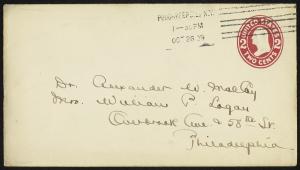 POUGHKEEPSIE, N.Y.
1-30PM
OCT 28
UNITED STATES
2 2
TWO CENTS
Dr. Alexander W. MacCoy
Mrs. William P. Logan
Overbrook Ave & 58th St.
Philadelphia